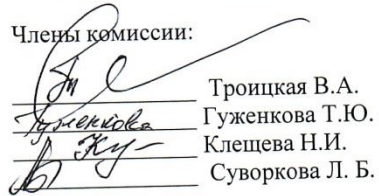 Члены комиссии:
Троицкая В.А.
Гуженкова Гуженкова Т.Ю.
Клещева Н.И.
Суворкова Л. Б.